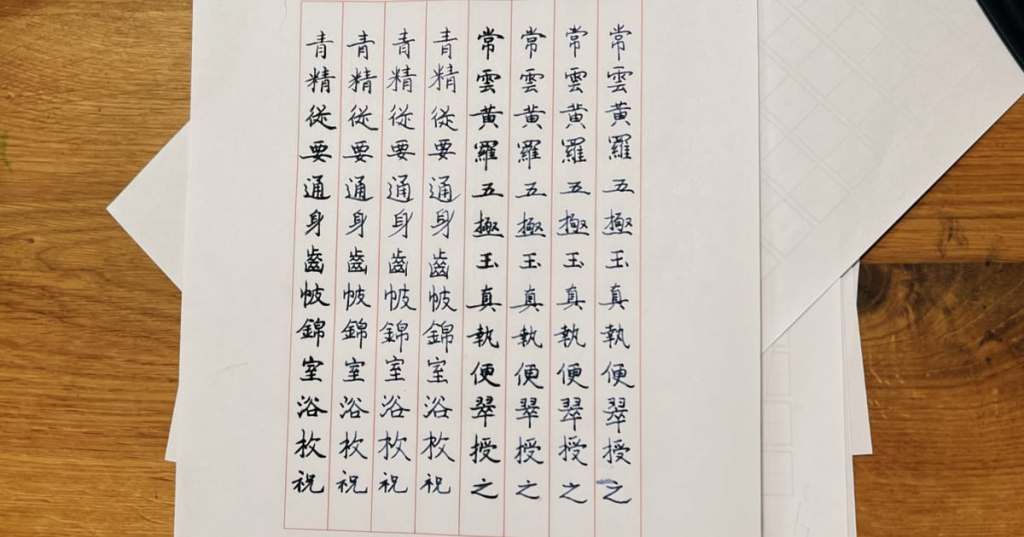 常雲黄羅五極玉真執便翠授之
常雲黄羅五極玉真執便翠授之
常雲黄羅五極玉真執便翠授之
常雲黄羅五極玉真執便翠授之
青精従要通身齒帔錦室浴枚祝
青精従要通身齒帔錦室浴枚祝
青精従要通身齒帔錦室浴枚祝
青精従要通身齒帔錦室浴枚祝